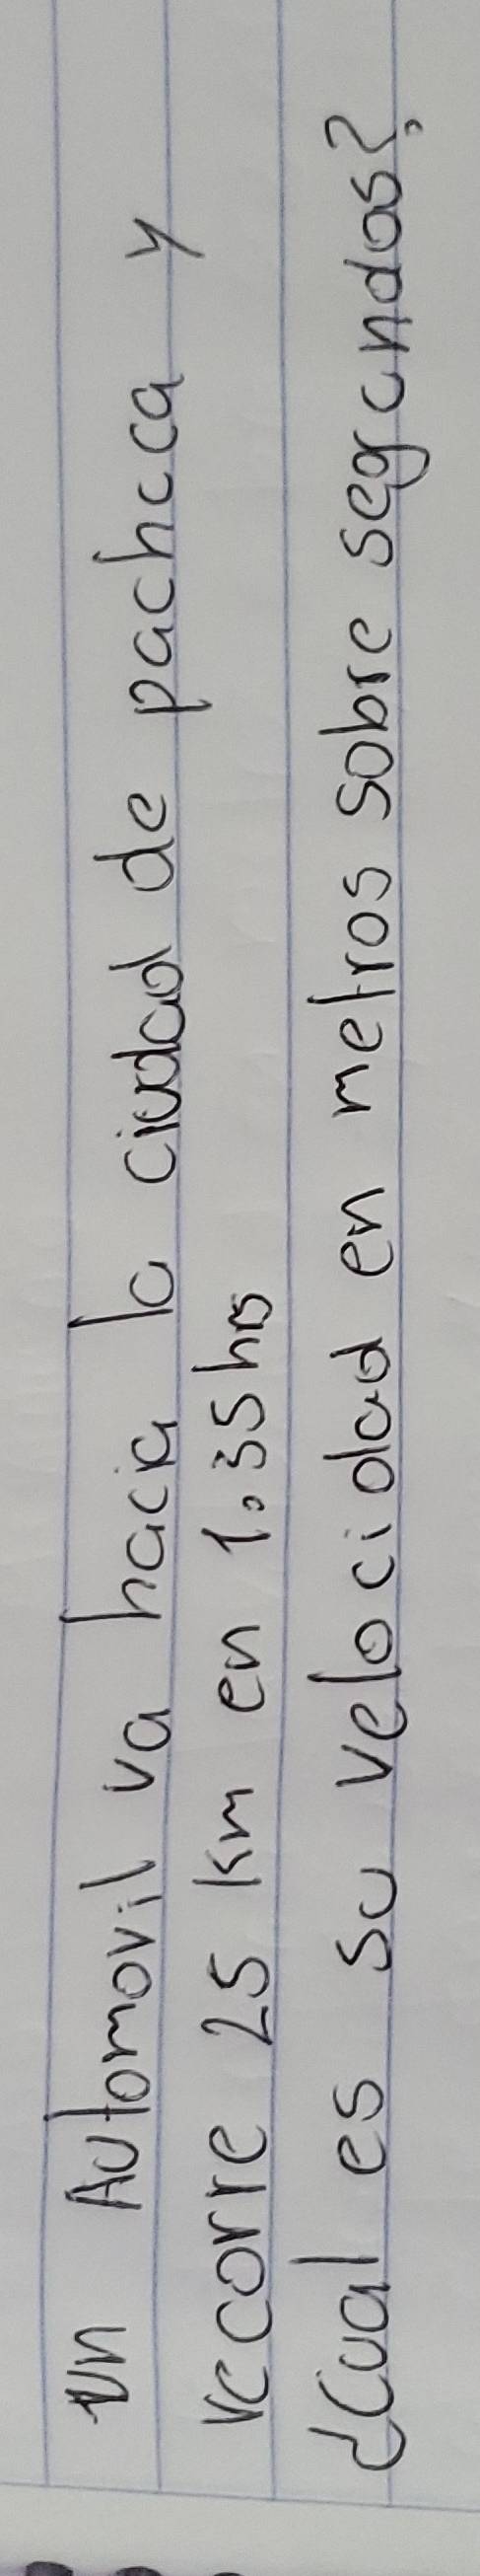 un Automovil va hacia la ciudad de pachuca y
recorre 25 km en 1.35 hrs
¿Cual es su velocidad en metros sobre segundos?